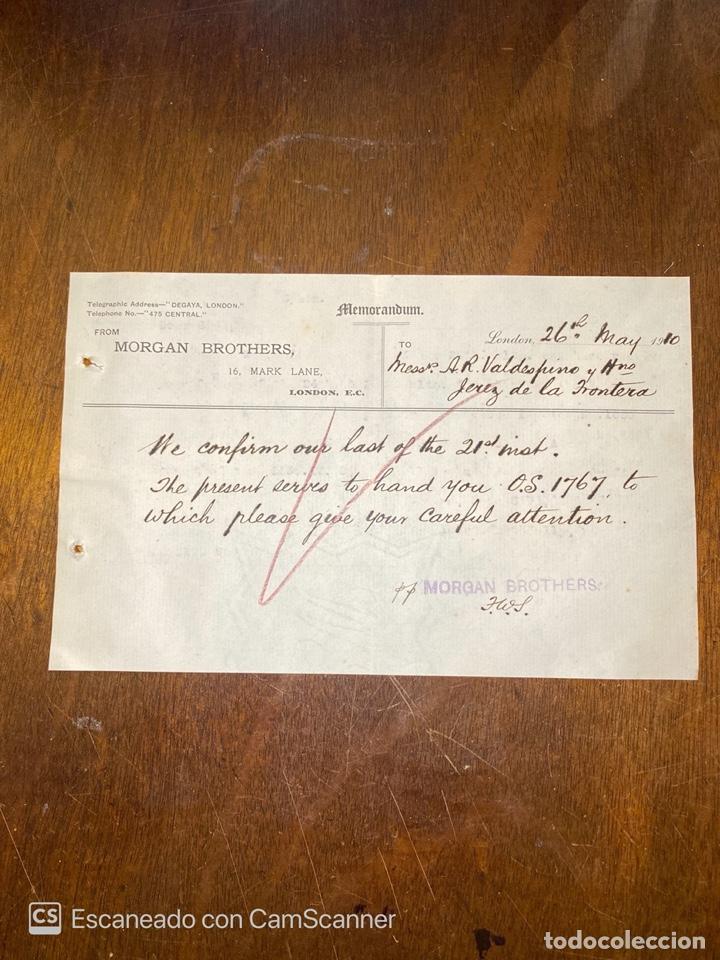 Telegraphic Address—"DEGAYA, LONDON."
Telephone No.—"475 CENTRAL."
Memorandum.
FROM
MORGAN BROTHERS,
16, MARK LANE,
LONDON, E.C.
London, 26th May 1910
TO
Messrs A.R. Valdespino y Hno
Jerez de la Frontera
We confirm our last of the 21st inst.
The present serves to hand you O.S. 1767, to
which please give your careful attention.
pp MORGAN BROTHERS.
F.W.S.
CS Escaneado con CamScanner
todocoleccion